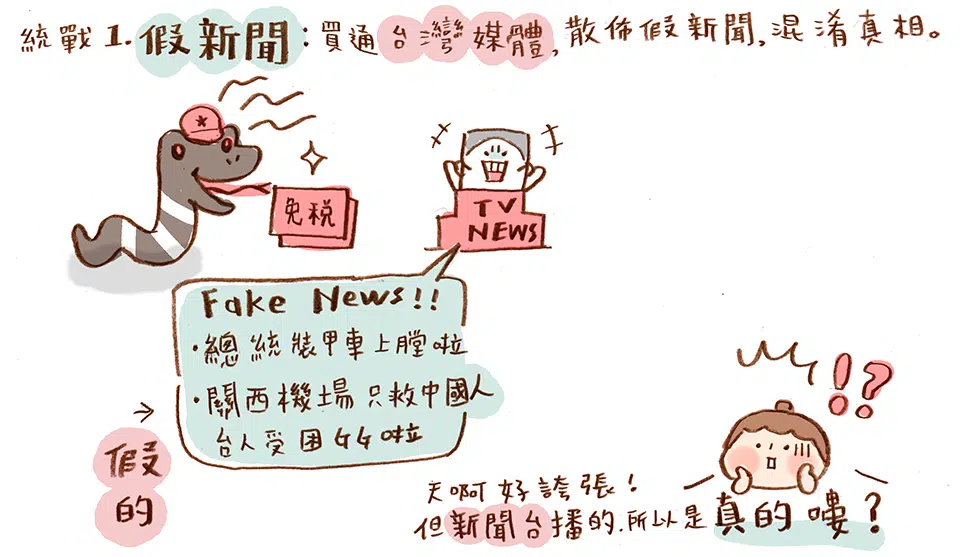 統戰1.假新聞:買通台灣媒體,散佈假新聞,混淆真相。
免稅
TV
NEWS
Fake News!!
·總統裝甲車上膛啦
·關西機場只救中國人
台人受困GG啦
假
的
天啊好誇張!
但新聞台播的.所以是真的嘍?
!?